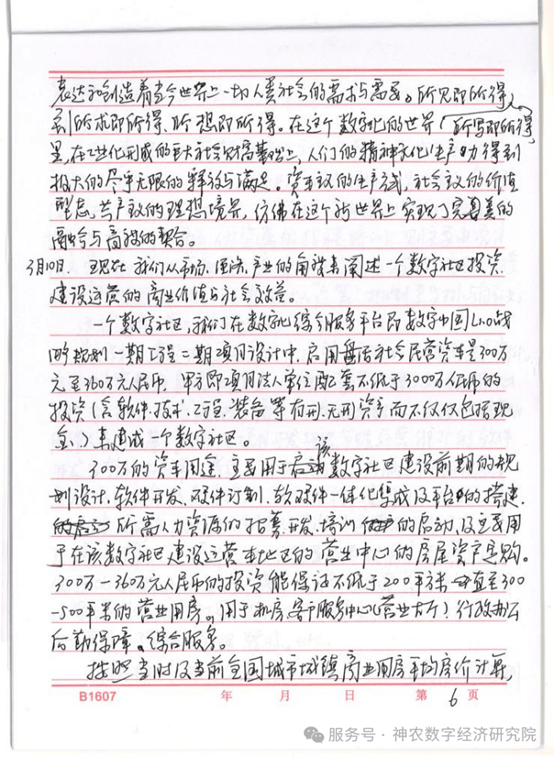 表达和创造着当今世界上一切人类社会的需求与需要。所见即所得,
到所求即所得、所想即所得。在这个数字化的世界
所写即所得
里,在工业化形成的巨大社会财富基础上,人们的精神文化生产力得到
极大的尽乎无限的释放与满足。资本主义的生产方式,社会主义的价值
型态,共产主义的理想境界,仿佛在这个新世界上实现了完善美的
融合与高效的契合。
3月10日. 现在我们从市场、经济、产业的角度来阐述一个数字社区投资、
建设运营的商业价值与社会效益。
一个数字社区,我们在数字化综合服务平台即数字中国1.0战
略规划一期工程二期项目设计中,启用盘活社会民营资本是300万
元至360万元人民币,甲方即项目法人单位配套不低于3000万人民币的
投资(含软件、技术、工程、装备等有形、无形资产而不仅仅包括现
金,)来建成一个数字社区。
300万的资本用途,主要用于启动该数字社区建设前期的规
划设计、软件开发、硬件订制、软硬件一体化集成及平台的搭建、
所需人力资源的招募、开发、培训的启动,及主要用
于在该数字社区建设运营本地区的营业中心的房屋资产呈购。
300万—360万元人民币的投资能保证不低于200平方米直至300
-500平米的营业用房。用于机房、客户服务中心(营业大厅)行政办公
后勤保障、综合服务。
按照当时及当前全国城市城镇商业用房平均房价计算,
B1607 年 月 日 第 6 页
服务号·神农数字经济研究院